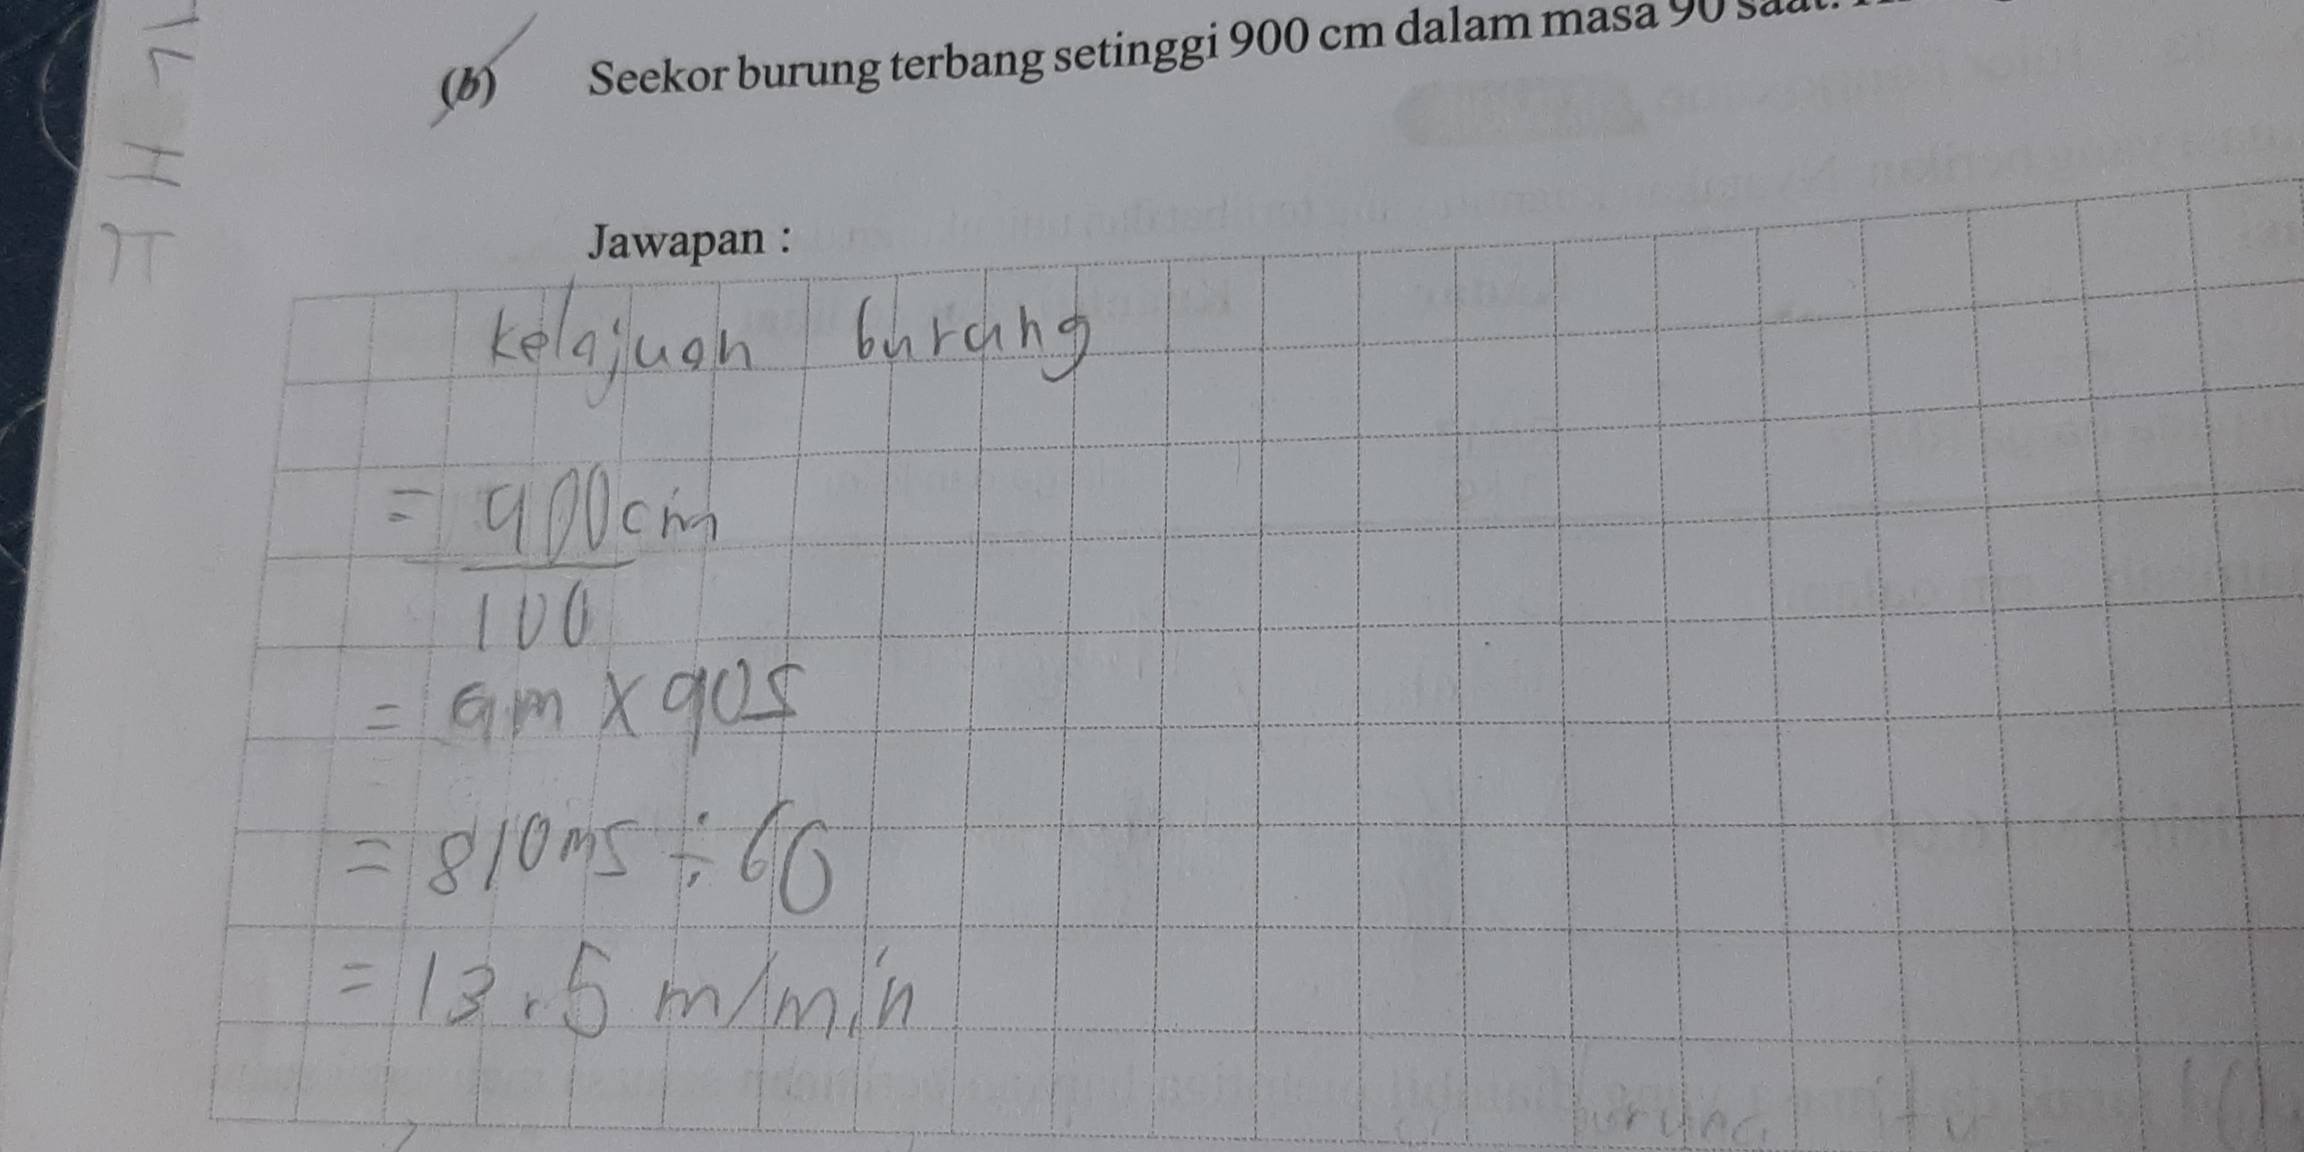 (b) Seekor burung terbang setinggi 900 cm dalam masa 90 saat.
Jawapan :
kelajuan burung
= 900cm
100
= 9m x 90s
= 810ms ÷ 60
= 13.5 m/min
burung itu